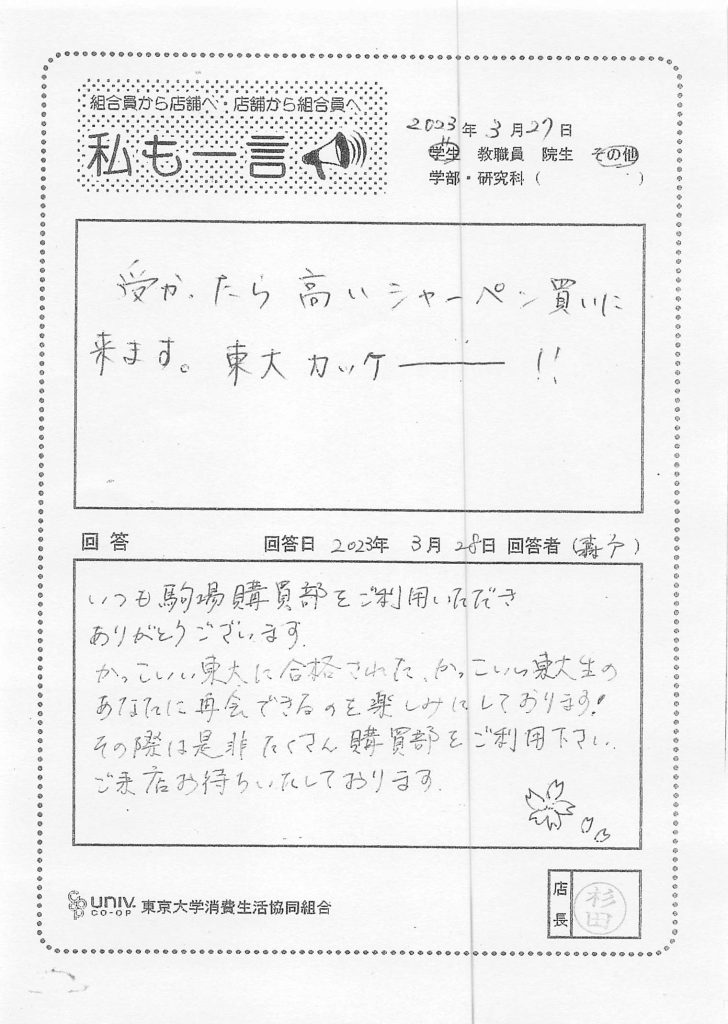 組合員から店舗へ・店舗から組合員へ
私も一言
2023年 3月27日
学生 教職員 院生 その他
学部・研究科( )
受かったら 高いシャーペン買いに
来ます。東大カッケー――!!
回答 回答日 2023年 3月 28日 回答者( )
いつも駒場購買部をご利用いただき
ありがとうございます.
かっこいい東大に合格された、かっこいい東大生の
あなたに再会できるのを楽しみにしております!
その際は是非たくさん購買部をご利用下さい.
ご来店お待ちいたしております.
coop UNIV. CO-OP 東京大学消費生活協同組合
店長 杉田